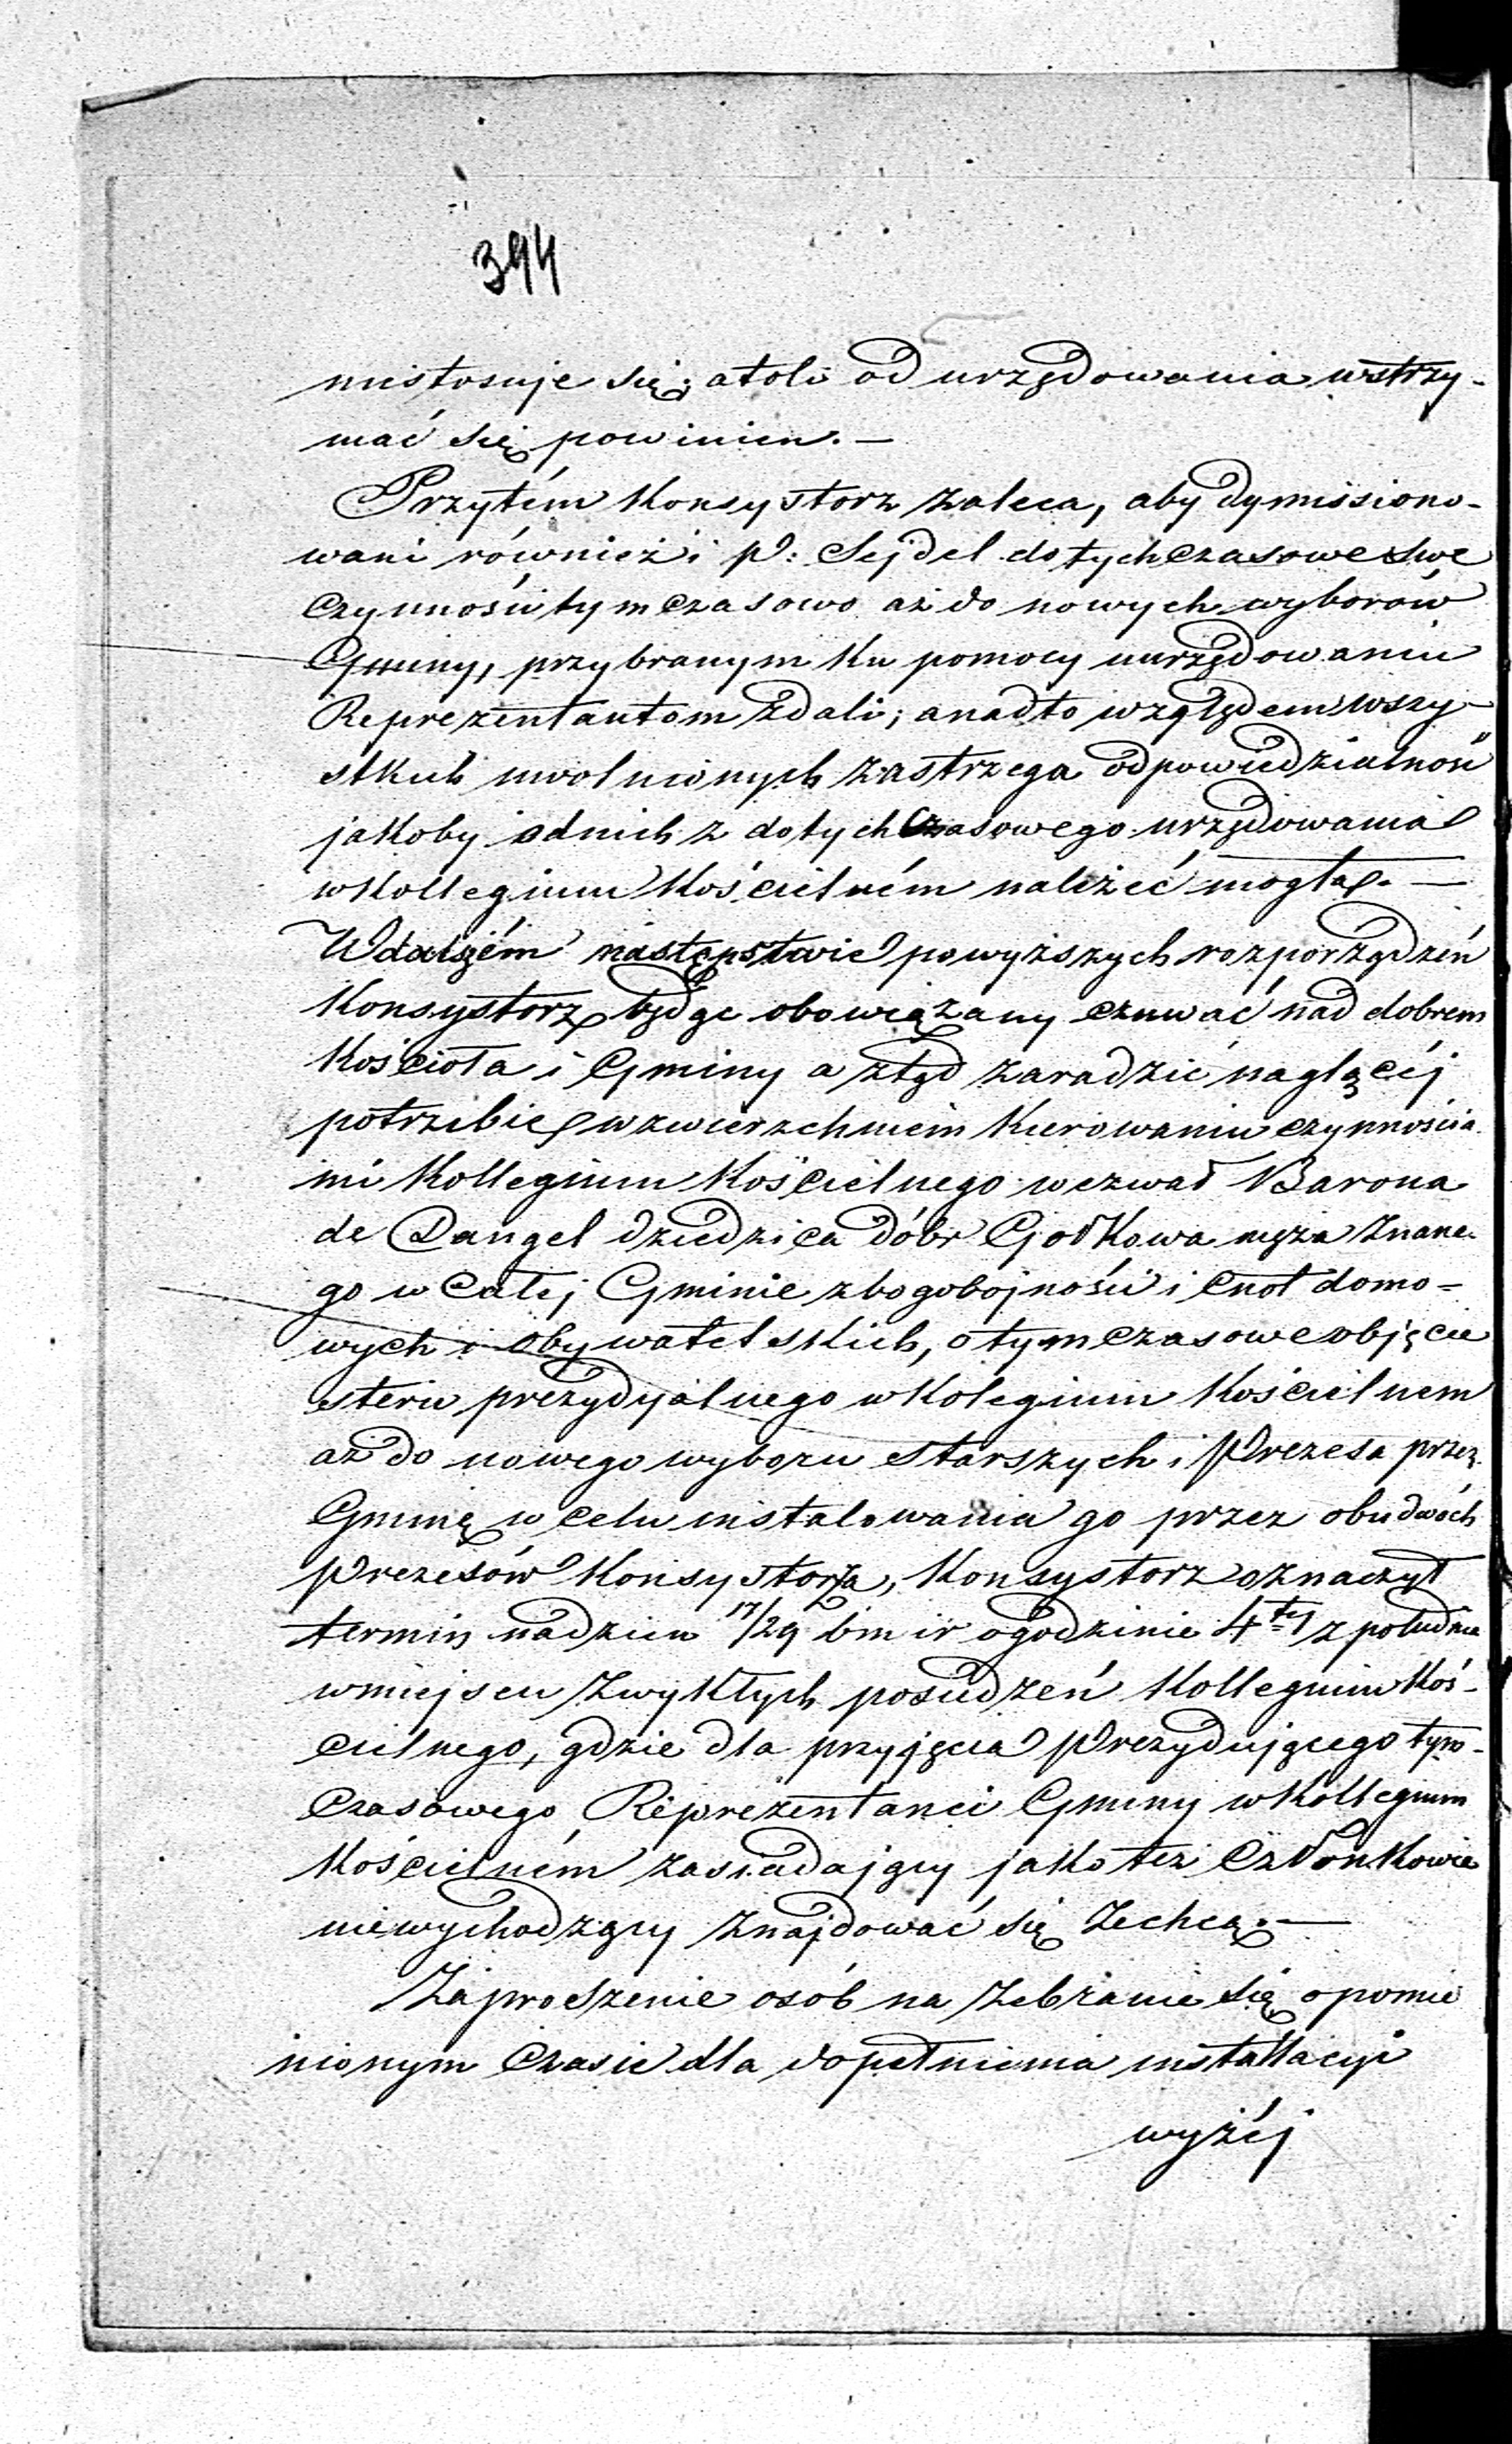 394
niestosuje się; atoli od urzędowania wstrzy-
mać się powinien. —
Przytém Konsystorz zaleca, aby dymissiono-
wani również i p: Sejdel dotychczasowe swe
czynności tymczasowo aż do nowych wyborów
Gminy, przybranym ku pomocy w urzędowaniu
Reprezentantom zdali; a nadto względem wszy-
stkich uwolnionych zastrzega odpowiedzialność
jakoby od nich z dotychczasowego urzędowania
w Kollegium Kościelném należeć mogła. —
W dalszém następstwie powyższych rozporządzeń
Konsystorz będąc obowiązany czuwać nad dobrem
Kościoła i Gminy a ztąd zaradzić naglącéj
potrzebie w zwierzchniém kierowaniu czynnościa-
mi Kollegium Kościelnego wezwał Barona
de Dangel dziedzica dóbr Gołkowa męża znane-
go w całej Gminie z bogobojności i cnot domo-
wych i obywatelskich, o tymczasowe objęcie
steru prezydyalnego w Kolegium Kościelnem
aż do nowego wyboru starszych i Prezesa przez
Gminę w celu instalowania go przez obudwóch
Prezesów Konsystorza, Konsystorz oznaczył
termin na dzień 17/29 bm ir o godzinie 4téj z południa
w miejscu zwykłych posiedzeń Kollegium Koś-
cielnego, gdzie dla przyjęcia Prezydującego tym-
czasowego Reprezentanci Gminy w Kollegium
Kościelném zasiadający jako też członkowie
niewychodzący znajdować się zechcą. —
Zaproszenie osób na zebranie się o pomie
nionym czasie dla dopełnienia installacyi
wyżéj